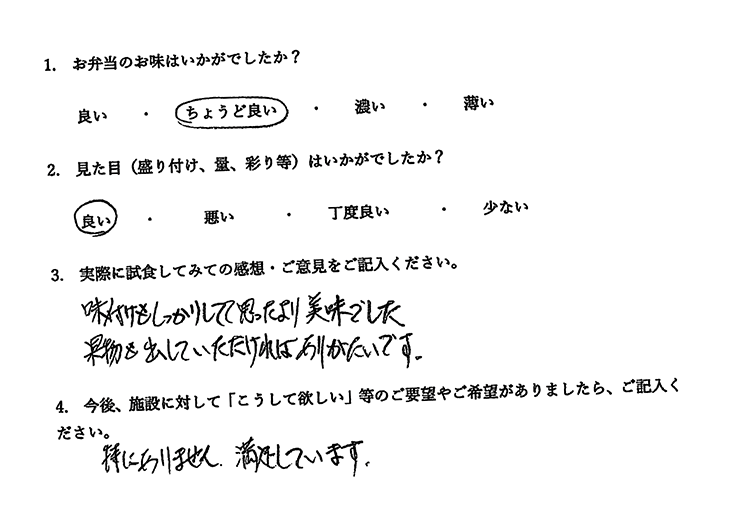 1. お弁当のお味はいかがでしたか？
良い ・ ちょうど良い ・ 濃い ・ 薄い
2. 見た目（盛り付け、量、彩り等）はいかがでしたか？
良い ・ 悪い ・ 丁度良い ・ 少ない
3. 実際に試食してみての感想・ご意見をご記入ください。
味付けもしっかりしてて思ったより美味でした
果物も出していただければありがたいです。
4. 今後、施設に対して「こうして欲しい」等のご要望やご希望がありましたら、ご記入く
ださい。
特にありません。満足しています。